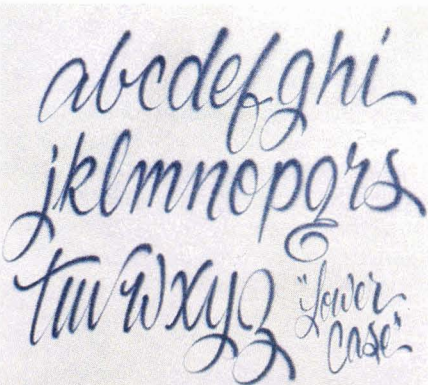 abcdefghi
jklmnopqrs
tuvwxyz
"Lower
Case"